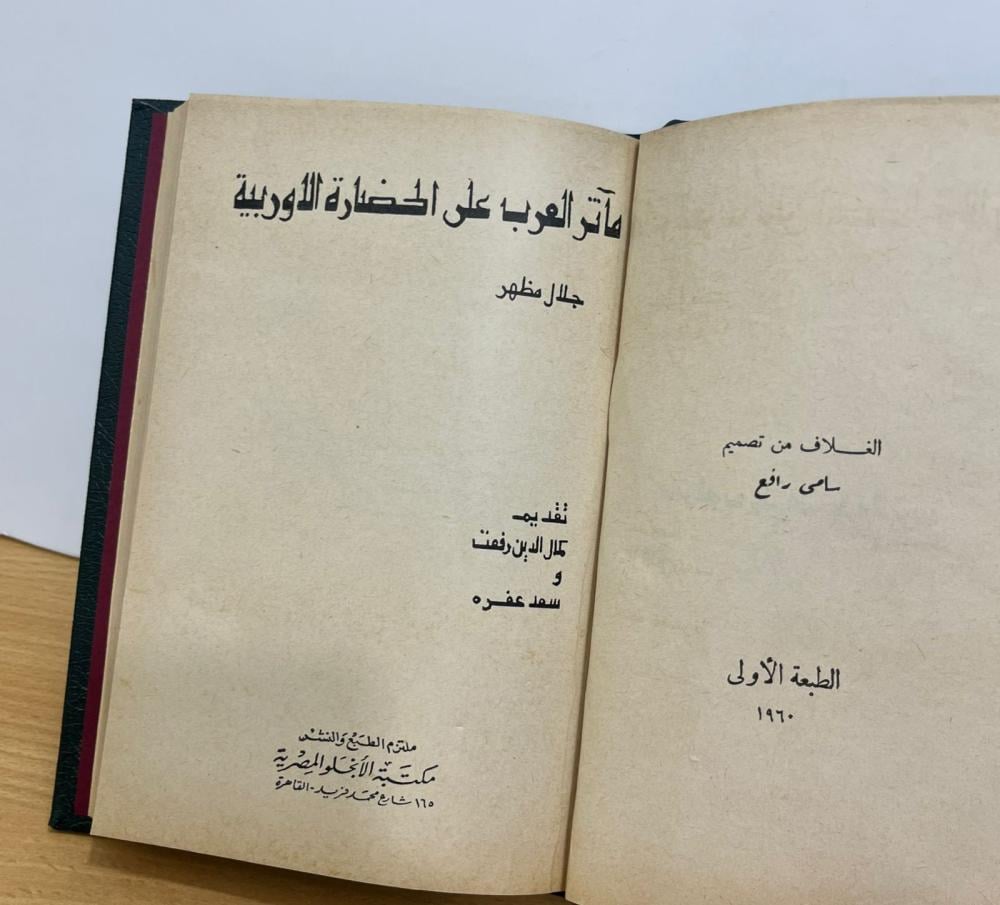 مآثر العرب على الحضارة الاوربية
جلال مظهر
تقديم
كمال الدين رفعت
و
سعد عفره
ملتزم الطبع والنشر
مكتبة الأنجلو المصرية
١٦٥ شارع محمد فريد - القاهرة
الغلاف من تصميم
سامى رافع
الطبعة الأولى
١٩٦٠